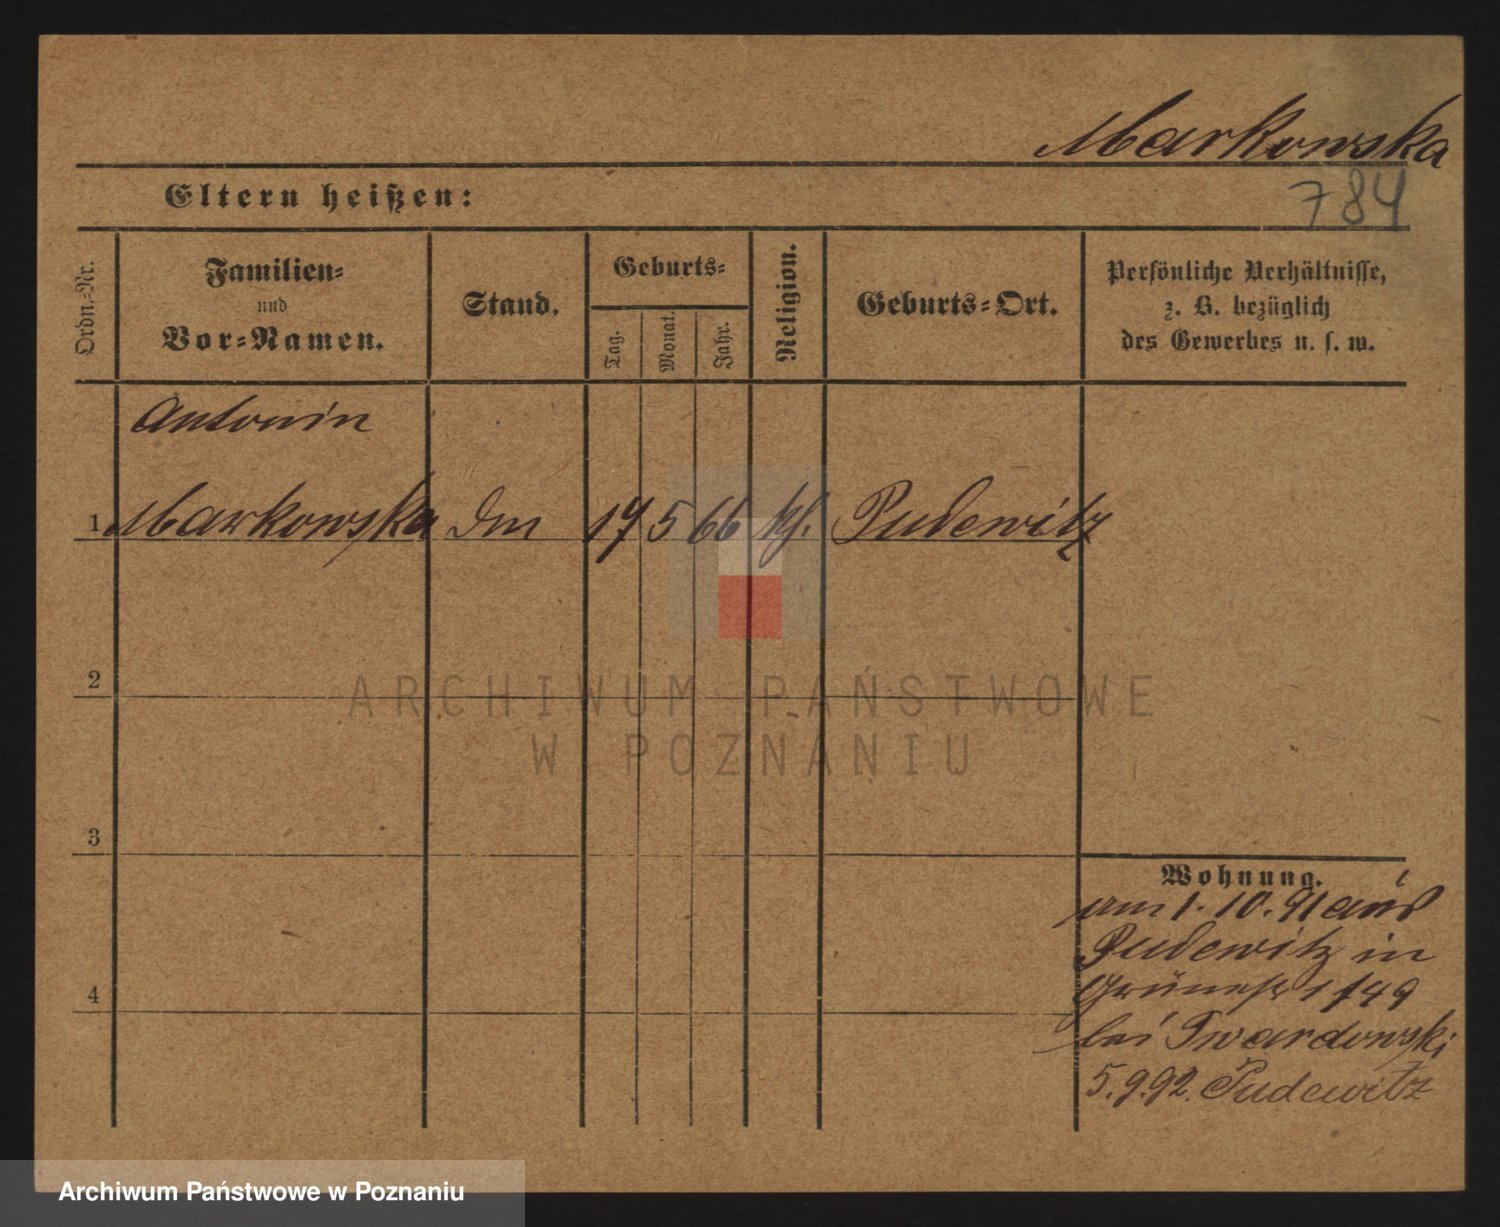 Markowska
Eltern heißen:
784
Ordn.-Nr.
Familien-
und
Vor-Namen.
Stand.
Geburts-
Tag.
Monat.
Jahr.
Religion.
Geburts-Ort.
Persönliche Verhältnisse,
z. B. bezüglich
des Gewerbes u. s. w.
Antonin
1 Markowska 17 5 66 kh. Pudewitz
2
ARCHIWUM PAŃSTWOWE
W POZNANIU
3
Wohnung.
am 1. 10. 91 aus
Pudewitz in
4
bei Twardowski
5.9.92. Pudewitz
Archiwum Państwowe w Poznaniu